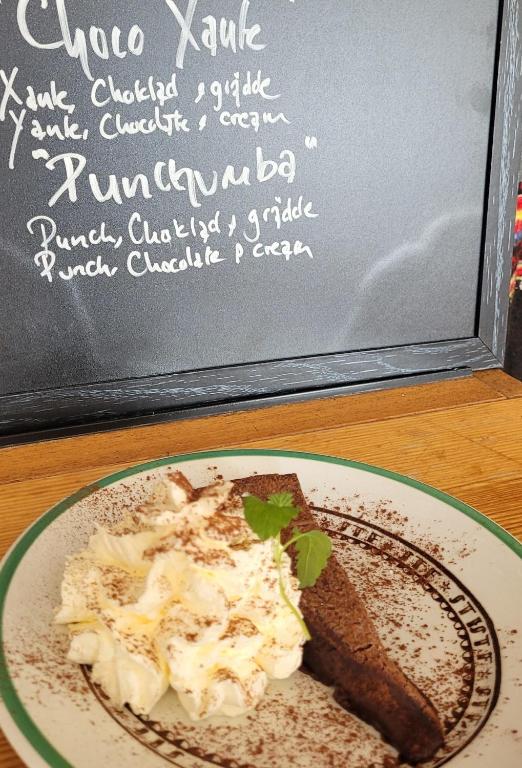 "Choco Xante"
Xante, Choklad, grädde
Xante, Chocolate, cream
"Punchumba"
Punch, Choklad, grädde
Punch, Chocolate, cream